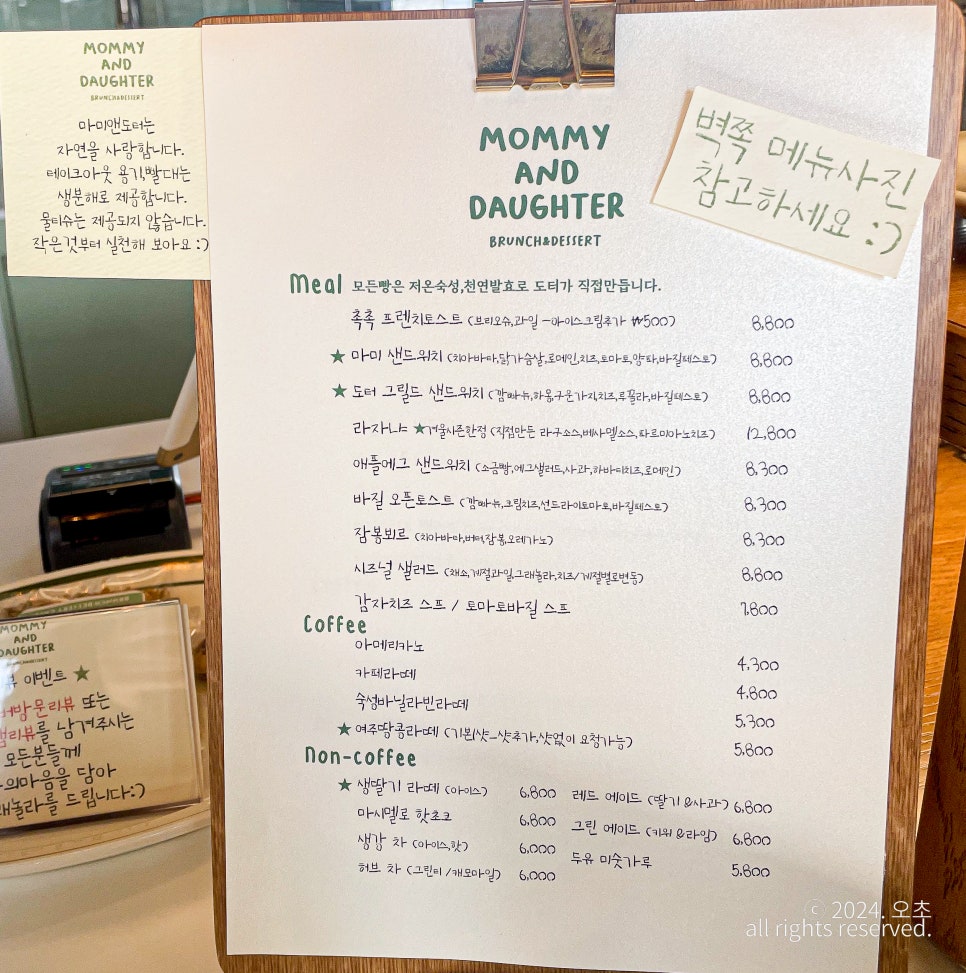 MOMMY
AND
DAUGHTER
BRUNCH&DESSERT
마미앤도터는
자연을 사랑합니다.
테이크아웃 용기,빨대는
생분해로 제공합니다.
물티슈는 제공되지 않습니다.
작은것부터 실천해 보아요:)
MOMMY
AND
DAUGHTER
BRUNCH&DESSERT
벽쪽 메뉴사진
참고하세요:)
Meal 모든빵은 저온숙성,천연발효로 도터가 직접만듭니다.
촉촉 프렌치토스트 (브리오슈,과일 -아이스크림추가 ₩500) 8,800
★ 마미 샌드위치 (치아바타,닭가슴살,로메인,치즈,토마토,양파,바질페스토) 8,800
★ 도터 그릴드 샌드위치 (깜빠뉴,하몽,구운가지,치즈,루꼴라,바질페스토) 8,800
라자냐 ★겨울시즌한정 (직접만든 라구소스,베샤멜소스,파르미아노치즈) 12,800
애플에그 샌드위치 (소금빵,에그샐러드,사과,하바티치즈,로메인) 8,300
바질 오픈토스트 (깜빠뉴,크림치즈,선드라이토마토,바질페스토) 8,300
잠봉뵈르 (치아바타,버터,잠봉,오레가노) 8,300
시즈널 샐러드 (채소,계절과일,그래놀라,치즈/계절별로변동) 8,800
감자치즈 스프 / 토마토바질 스프 7,800
Coffee
아메리카노 4,300
카페라떼 4,800
숙성바닐라빈라떼 5,300
★ 여주땅콩라떼 (기본1샷-샷추가,샷없이 요청가능) 5,800
Non-coffee
★ 생딸기 라떼 (아이스) 6,800 레드 에이드 (딸기&사과) 6,800
마시멜로 핫초코 6,800 그린 에이드 (키위&라임) 6,800
생강 차 (아이스,핫) 6,000 두유 미숫가루 5,800
허브 차 (그린티/캐모마일) 6,000
MOMMY
AND
DAUGHTER
BRUNCH&DESSERT
이벤트 ★
방문리뷰 또는
리뷰를 남겨주시는
모든분들께
마음을 담아
를 드립니다:)
ⓒ 2024. 오초
all rights reserved.